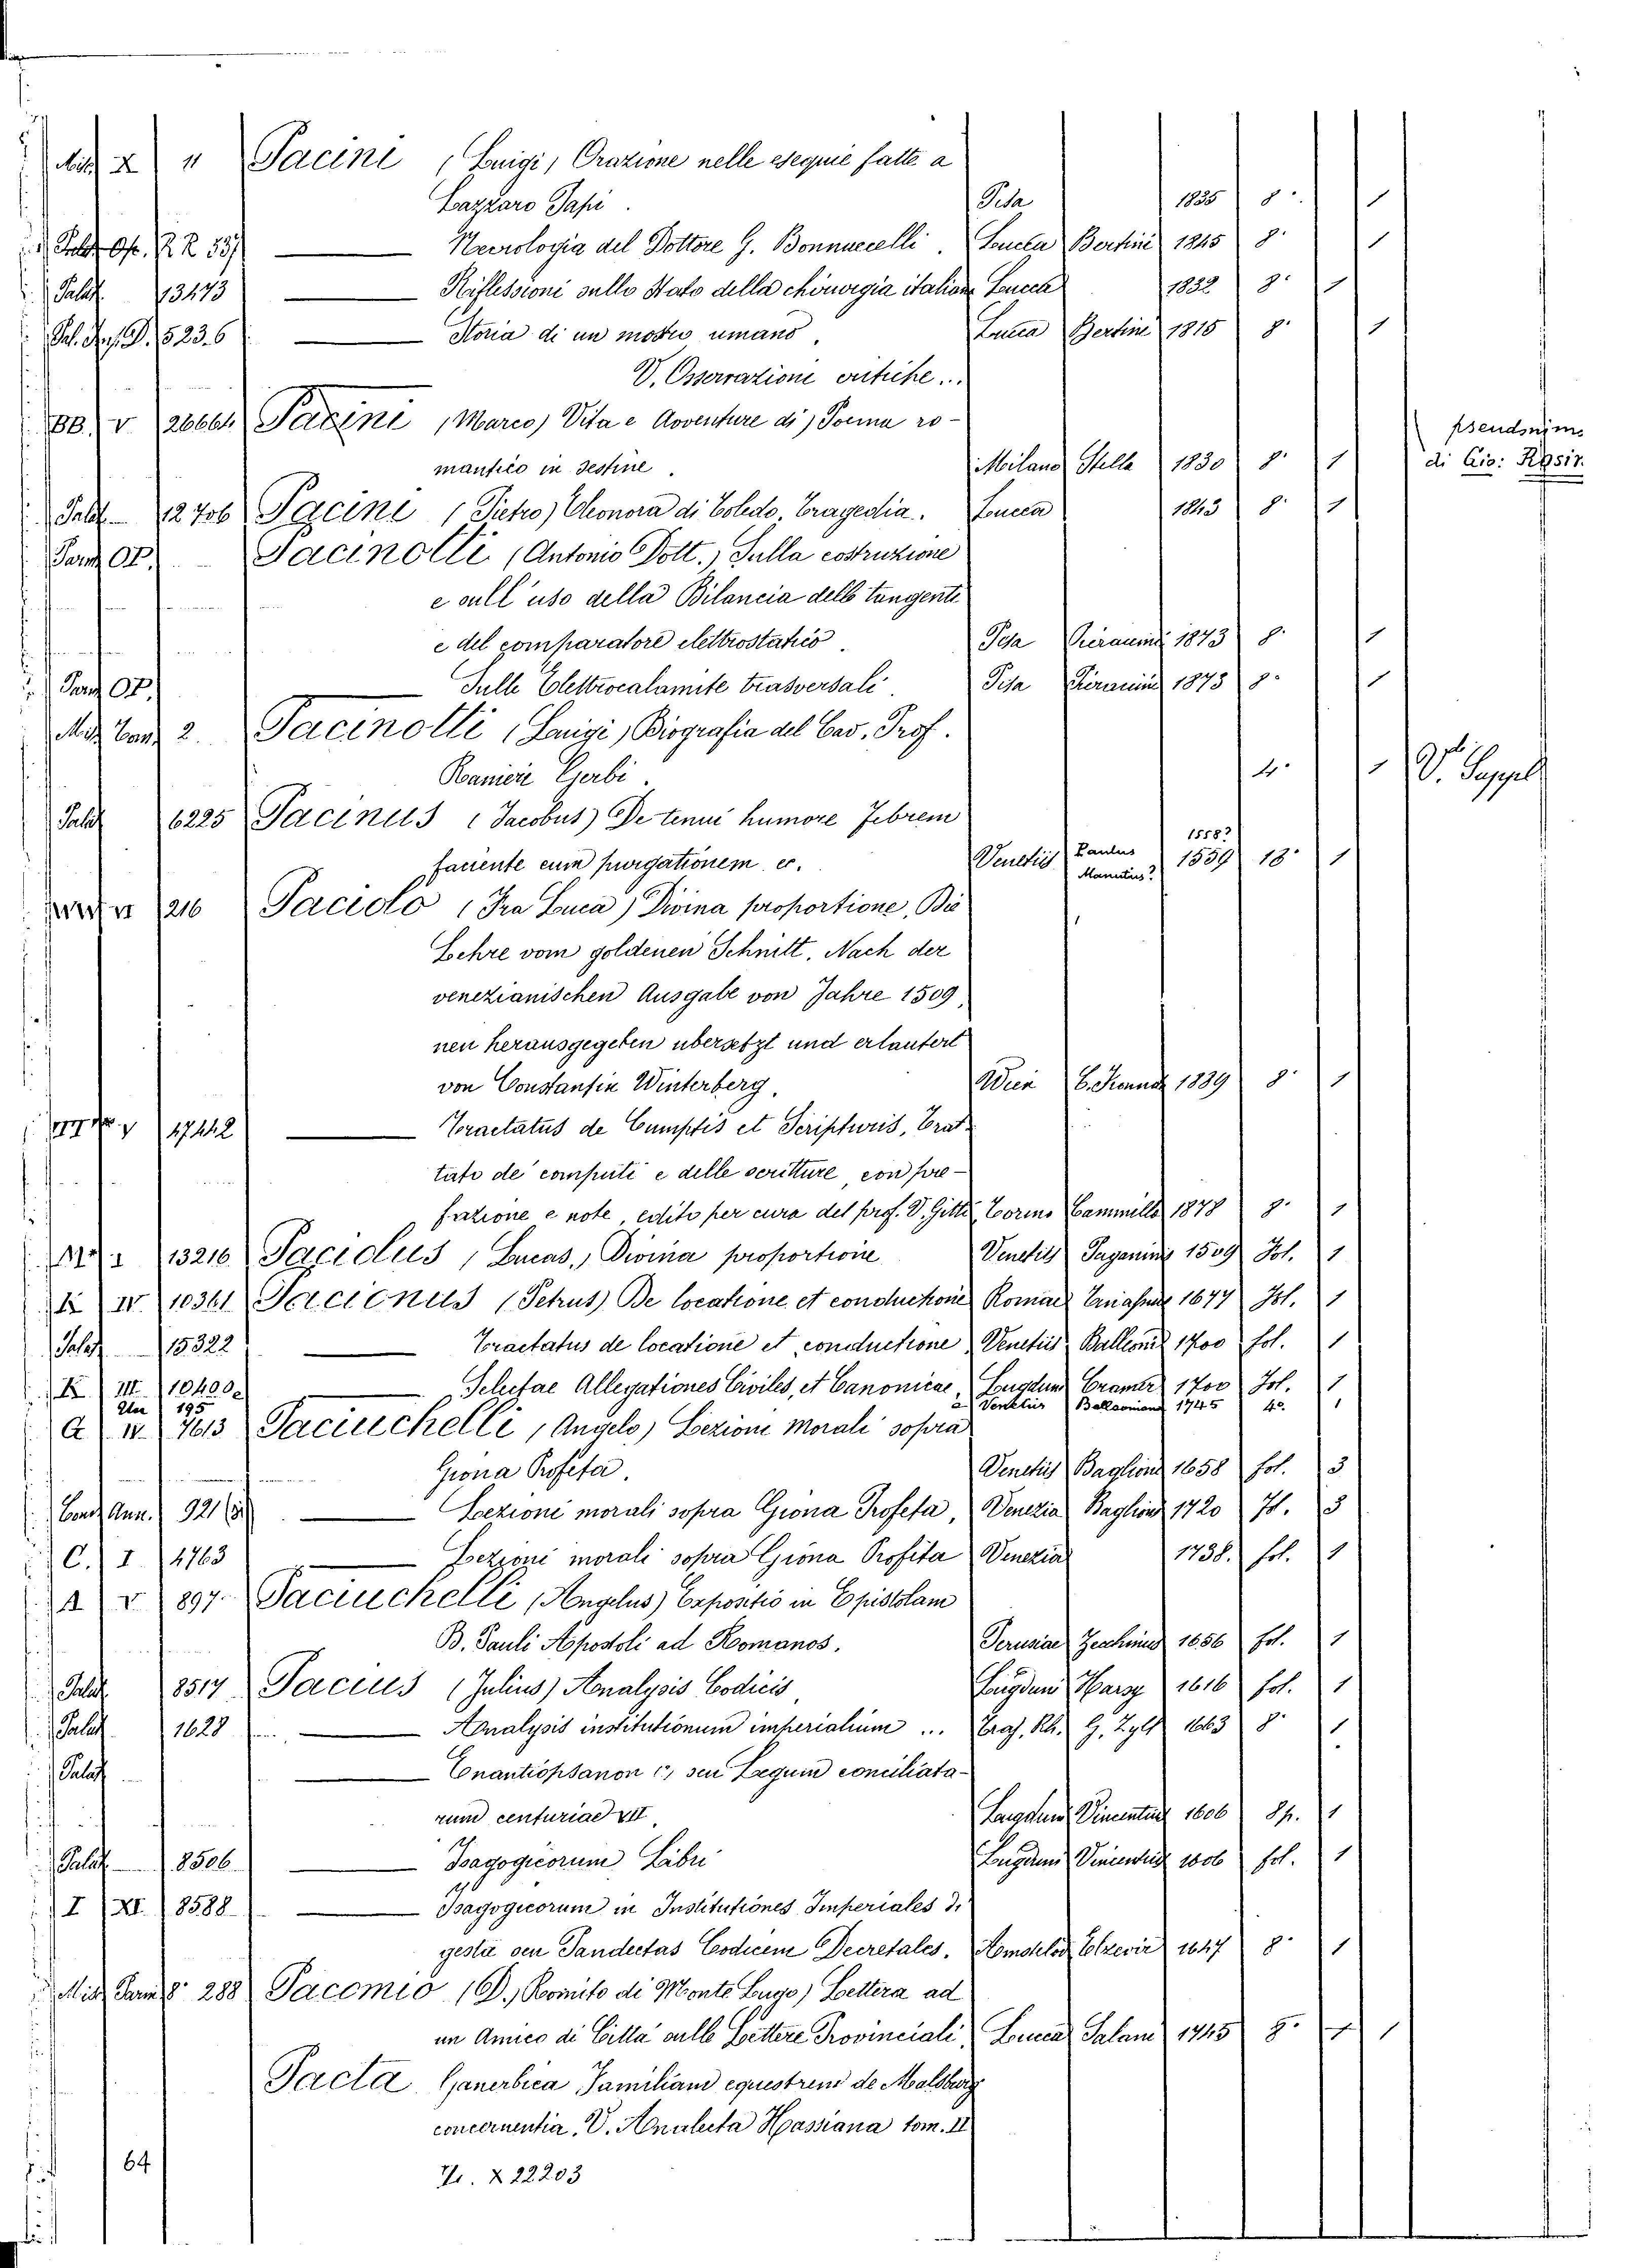 Misc X " Pacini (Luigi) Orazione nelle esequie fatte a
Lazzaro Papi. Pisa 1835 8. 1
Op. RR 537 Necrologia del Dottore G. Bonnuccelli. Lucca Bertini 1845 8. 1
Palat 13473 Riflessioni sullo stato della chirurgia italiana Lucca 1832 8. 1
D. 5236 Storia di un mostro umano. Lucca Bertini 1815 8. 1
V. Osservazioni critiche...
BB. V 26664 Pacini (Marco) Vita e Avventure di) Poema ro-
mantico in sestine. Milano Stella 1830 8. 1 pseudonimo
di Gio: Rosin.
Palat 12706 Pacini (Pietro) Eleonora di Toledo, Tragedia. Lucca 1843 8. 1
OP. Pacinotti (Antonio Dott.) Sulla costruzione
e sull' uso della Bilancia delle tangenti
e del comparatore elettrostatico. Pisa Pieraccini 1873 8. 1
OP. Sulle Elettrocalamite trasversali. Pisa Pieraccini 1873 8. 1
Misc 2. Pacinotti (Luigi) Biografia del Cav. Prof.
Ranieri Gerbi. 4. 1 V. Suppl
Palat 6225 Pacinus (Jacobus) De tenui humore febrem
faciente cum purgationem. Venetiis Paulus Manutius? 1558? 1559 18. 1
216 Paciolo (Fra Luca) Divina proportione, Die
Lehre vom goldenen Schnitt. Nach der
venezianischen Ausgabe von Jahre 1509,
neu herausgegeben ubersetzt und erlautert
von Constantin Winterberg. Wien 1889 8. 1
17442 Tractatus de Cumptis et Scripturis, Trat-
tato de' computi e delle scritture, con pre-
fazione e note, edito per cura del prof. V. Gitti Torino Cammilla 1878 8. 1
13216 Paciolus (Lucas,) Divina proportione Venetiis Paganinus 1509 fol. 1
IV 10361 Pacionus (Petrus) De locatione et conductione Romae 1677 fol. 1
Palat 15322 Tractatus de locatione et conductione Venetiis Balleoni 1700 fol. 1
K III 10400 Selectae Allegationes Civiles, et Canonicae, Lugduni Cramer 1700 fol. 1
195 Venetiis 1745 4o. 1
A IV 7613 Paciuchelli (Angelo) Lezioni Morali sopra
Giona Profeta. Venetiis Baglioni 1658 fol. 3
Ann. 921 Lezioni morali sopra Giona Profeta, Venezia Baglioni 1720 fl. 3
C. I 4763 Lezioni morali sopra Giona Profeta Venezia 1738. fol. 1
A V 897 Paciuchelli (Angelus) Expositio in Epistolam
B. Pauli Apostoli ad Romanos. Perusiae Zechinus 1656 fol. 1
Palat 8517 Pacius (Julius) Analysis Codicis Lugduni Harsy 1616 fol. 1
Palat 1628 Analysis institutionum imperialium ... Traj. Rh. G. Zyll 1663 8. 1
Palat Enantiophanon (, seu Legum conciliata-
rum centuriae VII. Lugduni Vincentius 1606 8p. 1
Palat 8506 Isagogicorum Libri Lugduni Vincentius 1606 fol. 1
I XI. 8588 Isagogicorum in Institutiones Imperiales Di
gesta seu Pandectas Codicem Decretales. Elzevir 1647 8. 1
8. 288 Pacomio (D., Romito di Monte Lugo) Lettera ad
un Amico di Citta' sulle Lettere Provinciali, Lucca Salani 1745 8. 1
Pacta Ganerbica Familiam equestrem de Malsburg
concernentia. V. Analecta Hassiana tom. II
X 22203
64